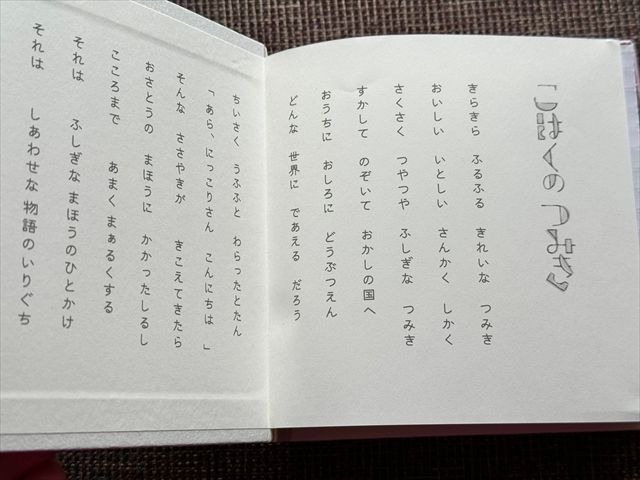 こはくのつみき
きらきら ふるふる きれいな つみき
おいしい いとしい さんかく しかく
さくさく つやつや ふしぎな つみき
すかして のぞいて おかしの国へ
おうちに おしろに どうぶつえん
どんな 世界に であえる だろう
ちいさく うふふと わらったとたん
「あら、にっこりさん こんにちは 」
そんな ささやきが きこえてきたら
おさとうの まほうに かかったしるし
こころまで あまく まぁるくする
それは ふしぎな まほうのひとかけ
それは しあわせな 物語のいりぐち